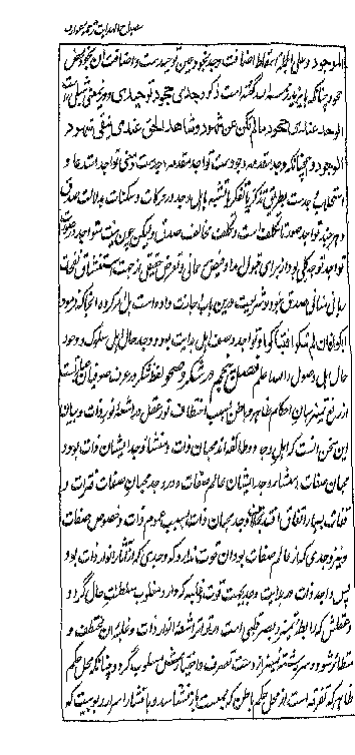 مصباح الهدایت ترجمه عوارف
الموجود و علی الجمله اسقاط اضافت وجد بخود عین توحیدست و اضافت آن بخود محض
جحود چنانکه رحمه الله گفته است ذکر وجدی جحود توحیدی و و نیز معنی شبلی است
الوجد عندی جحود مالم یکن عن شهود و شاهد الحق عندی ینفی شهود
الوجود و همچنانکه وجد مقدمه وجودست تواجد مقدمه وجدست و معنی تواجد استدعا و
استجلاب وجدست بطریق تذکر یا تفکر یا تشبه باهل وجد در حرکات و سکنات بدلالت صدق
و هرچند تواجد صورة تکلفست و تکلف مخالف صدق ولیکن چون نیت متواجد در صورت
تواجد توجه کلی بود از برای قبول امداد فیض رحمانی و تعرض حقیقی از جهت استنشاق نفحات
ربانی منافی صدق نبود و شریعت درین باب اجازت داده است بل امر کرده آنجا که فرمود
ابکوا فان لم تبکوا فتباکوا و تواجد وصف اهل بدایت بود و وجد حال اهل سلوک و وجود
حال اهل وصول و الله اعلم فصل پنجم در سکر و صحو لفظ سکر در عرف صوفیان عبارتست
از رفع تمییز میان احکام ظاهر و باطن بسبب اختطاف نور عقل در اشعهٔ نور ذات و بیان
این سخن آنست که اهل وجد دو طائفه اند محبان ذات و منشأ وجد ایشان ذات بود و
محبان صفات و منشأ وجد ایشان عالم صفات و در وجد محبان صفات فترت و
تفاوت بسیار اتفاق افتد وجد محبان ذات بسبب عموم ذات و خصوص صفات
و نیز وجدی که از عالم صفات بود آن قوت ندارد که وجدی که از آثار انوار ذات بود
پس واجد ذات در بدایت وجد بجهت قوت غالبه وارد مغلوب سلطنت حال گردد و
عقلش که رابطهٔ تمییز و بصر قلبی است در تواتر اشعهٔ انوار ذات و غلبهٔ آن مختطف و
متطایر شود و سررشتهٔ تمییز از دست تصرف و اختیارش مسلوب گردد و چنانکه محل حکم
ظاهر که تفرقه است از محل حکم باطن که جمعست باز نشناسد و بافشای اسرار ربوبیت که